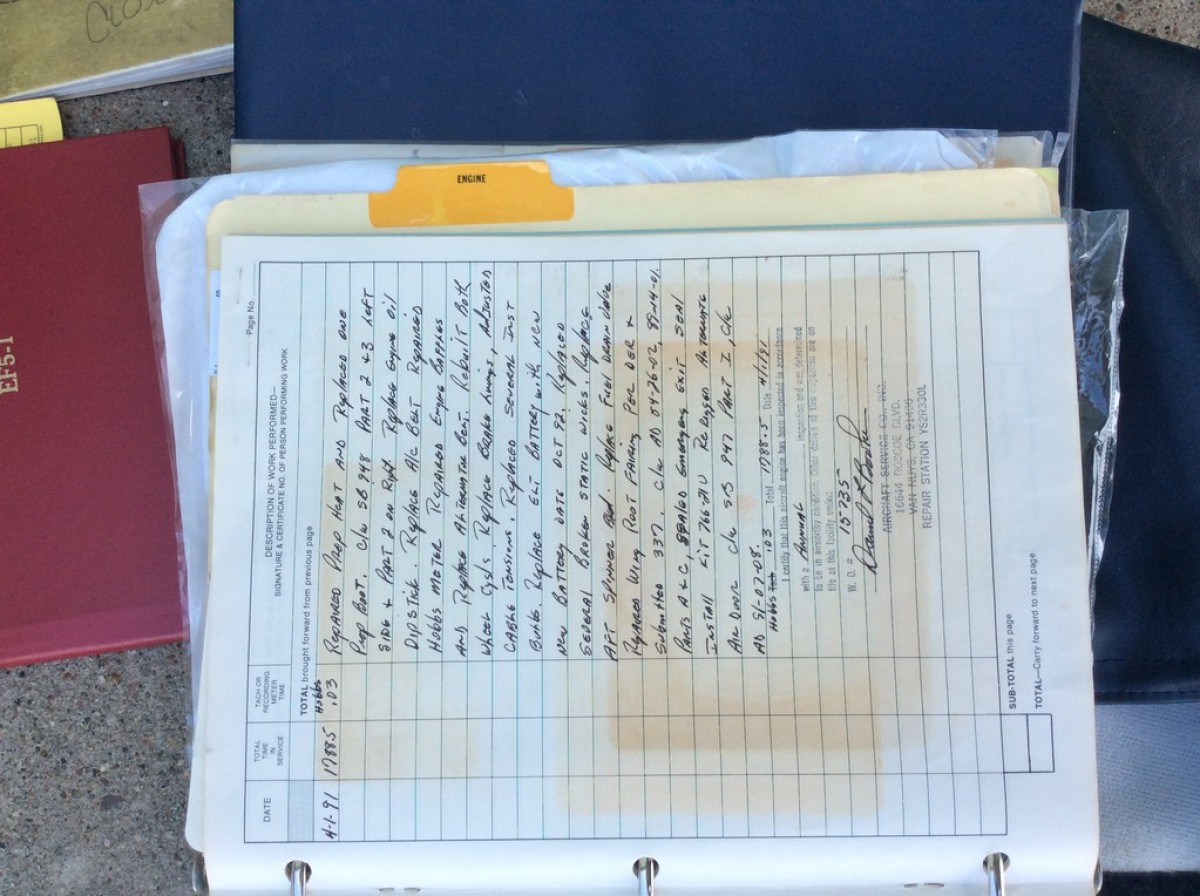 EF5-1
ENGINE
Page No.
DATE
TOTAL TIME IN SERVICE
TACH OR RECORDING METER TIME
DESCRIPTION OF WORK PERFORMED—
SIGNATURE & CERTIFICATE NO. OF PERSON PERFORMING WORK
TOTAL brought forward from previous page
Hobbs
4-1-91 1788.5 .03 Repaired Prop Heat AND Replaced ONE
Prop Boot. C/W SB 948 PART 2 & 3 Left
Side & PART 2 on Right Replace Engine Oil
Dipstick. Replace A/C Belt Repaired
Hobbs Motor Repaired Engine Baffles
AND Replace Alternator Belt. Rebuilt Both
Wheel Cyls. Replace Brake Linings, Adjusted
Cable Tensions. Replaced Several Inst
Bulbs. Replace ELT Battery with New
New Battery Date Oct 92. Replaced
Several Broken Static Wicks. Replace
AFT Spinner Replace Fuel Drain Valve
Repaired Wing Root Fairing Per DER &
Submitted 337. C/W AD 84-26-02, 89-14-01
Parts A & C, Sealed Emergency Exit Seal
Install Kit 766-214 Rerigged Alternate
Air Door C/W SB 947 PART I, C/W
AD 91-07-08.
Hobbs .03 Total 1788.5 Date 4/1/91
I certify that this aircraft engine has been inspected in accordance
with a Annual inspection and was determined
to be in airworthy condition. Other details of this inspection are on
file at this facility under:
W. O. # 15235
AIRCRAFT SERVICE CO., INC.
16644 ROSCOE BLVD.
VAN NUYS, CA 91406
REPAIR STATION VS2R330L
SUB-TOTAL this page
TOTAL—Carry forward to next page